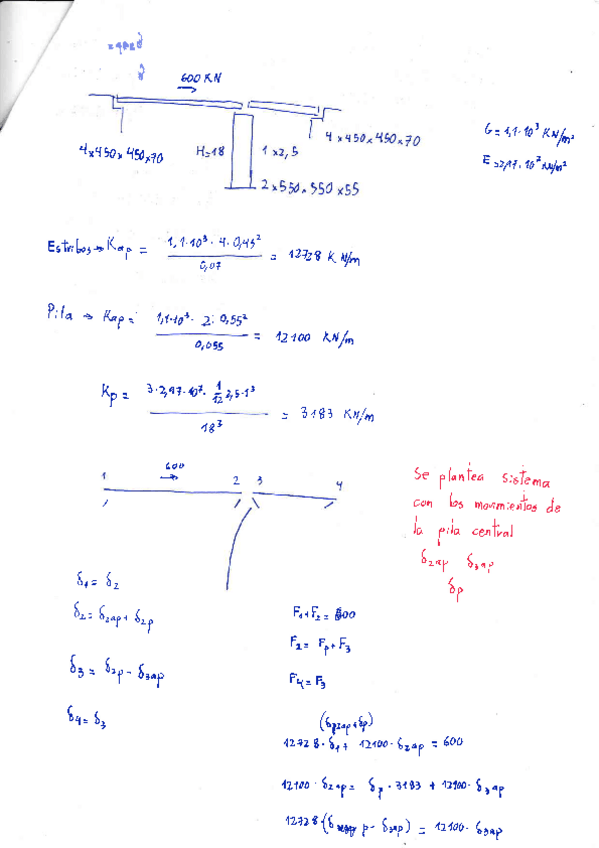 600 KN
4x450x450x70
H=18
1x2,5
4x450x450x70
2x550x550x55
G=1,1·10³ KN/m²
E=2,97·10⁷ KN/m²
Estribos → Kap = 1,1·10³·4·0,45² / 0,07 = 12728 KN/m
Pila → Kap = 1,1·10³·2·0,55² / 0,055 = 12100 KN/m
Kp = 3·2,97·10⁷·1/12 2,5·1³ / 18³ = 3183 KN/m
1 600 2 3 4
Se plantea sistema
con los movimientos de
la pila central
δ2ap δ3ap
δp
δ1 = δ2
δ2 = δ2ap + δ2p
δ3 = δ2p - δ3ap
δ4 = δ3
F1+F2 = 600
F2 = Fp+F3
F4 = F3
(δ2ap+δp)
12728·δ1 + 12100·δ2ap = 600
12100·δ2ap = δp·3183 + 12100·δ3ap
12728·(δp - δ3ap) = 12100·δ3ap